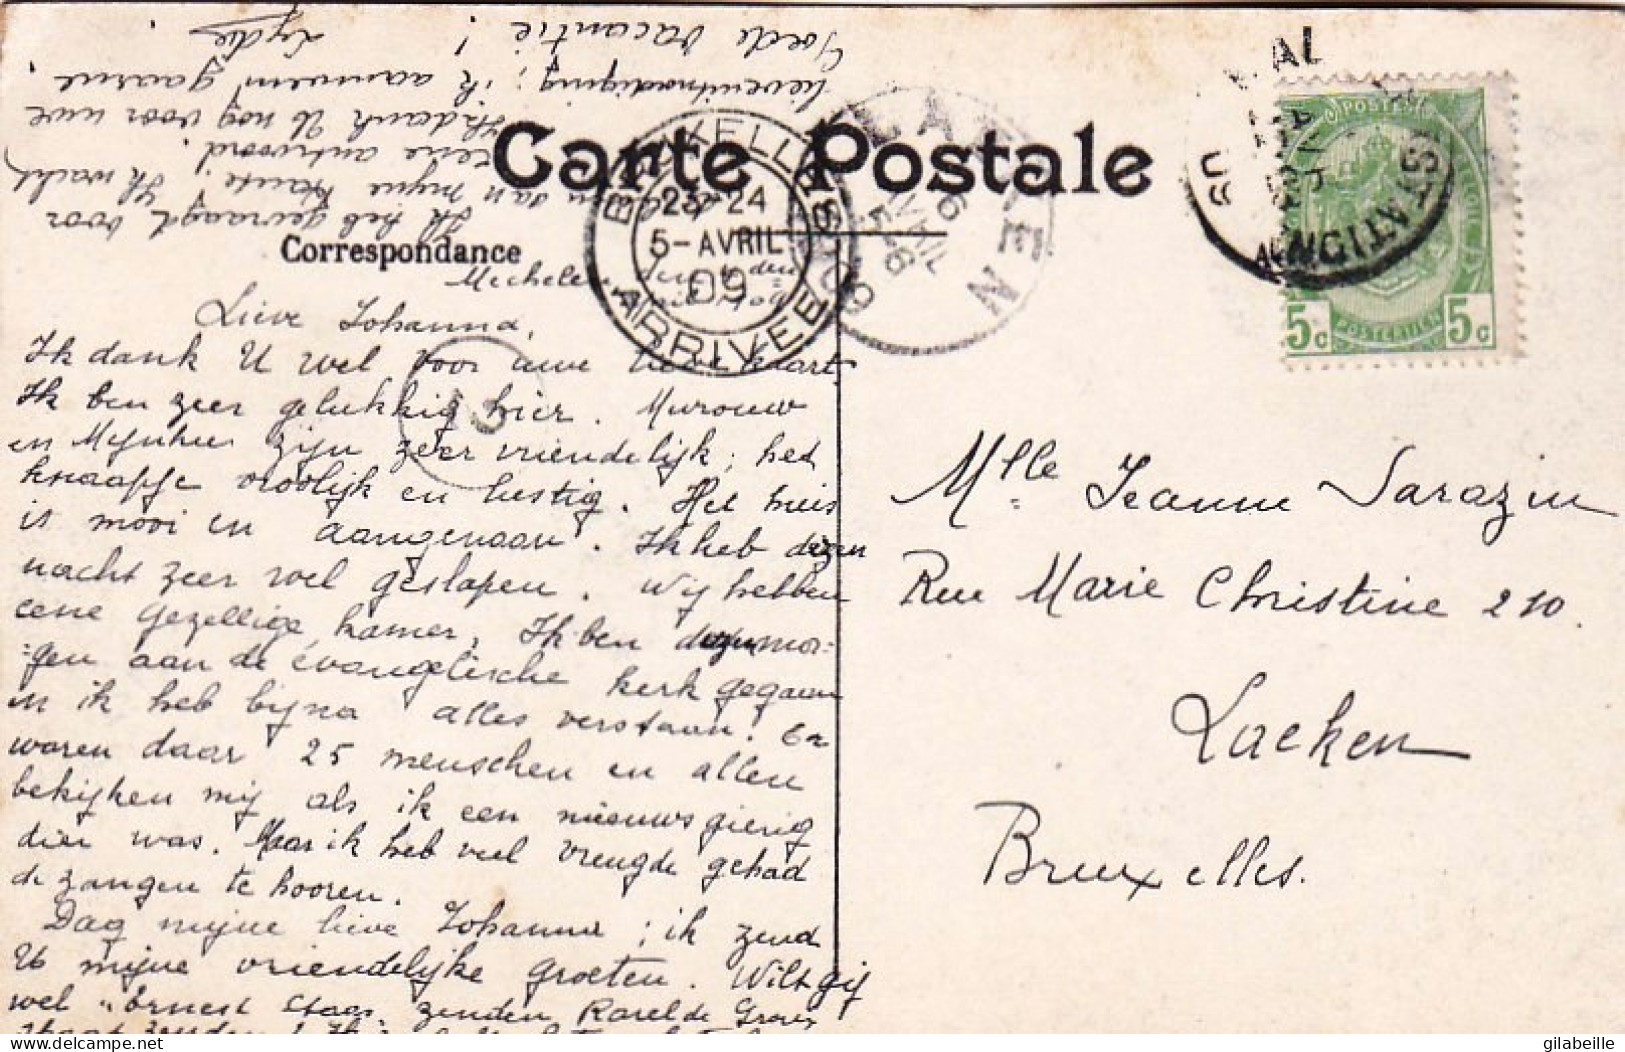 Carte Postale
Correspondance
BRUXELLES
23-24
5-AVRIL
09
ARRIVEE
LAEKEN
5c 5c
POSTERIJEN
Mechelen den
Lieve Johanna,
Ik dank U wel voor uwe lieve kaart.
Ik ben zeer gelukkig hier. Mevrouw
en Mijnheer zijn zeer vriendelijk; het
knaapje vroolijk en lustig. Het huis
is mooi en aangenaam. Ik heb dezen
nacht zeer wel geslapen. Wij hebben
eene gezellige kamer, Ik ben dezen mor=
=gen aan de evangelische kerk gegaan
en ik heb bijna alles verstaan! Er
waren daar 25 menschen en allen
bekijken mij als ik een nieuwsgierig
dier was. Maar ik heb veel vreugde gehad
de zangen te hooren.
Dag mijne lieve Johanna; ik zend
U mijne vriendelijke groeten. Wilt gij
wel "Ernest Staes zenden, Karel de
Ik heb gevraagd voor
mijne tante! Ik wacht
eene antwoord.
Ik dank U nog voor uwe
lieve uitnodiging; ik aanneem gaarne!
Goede vacantie! Lydie
Mlle Jeanne Sarazin
Rue Marie Christine 210.
Laeken
Bruxelles.
delcampe.net
gilabeille